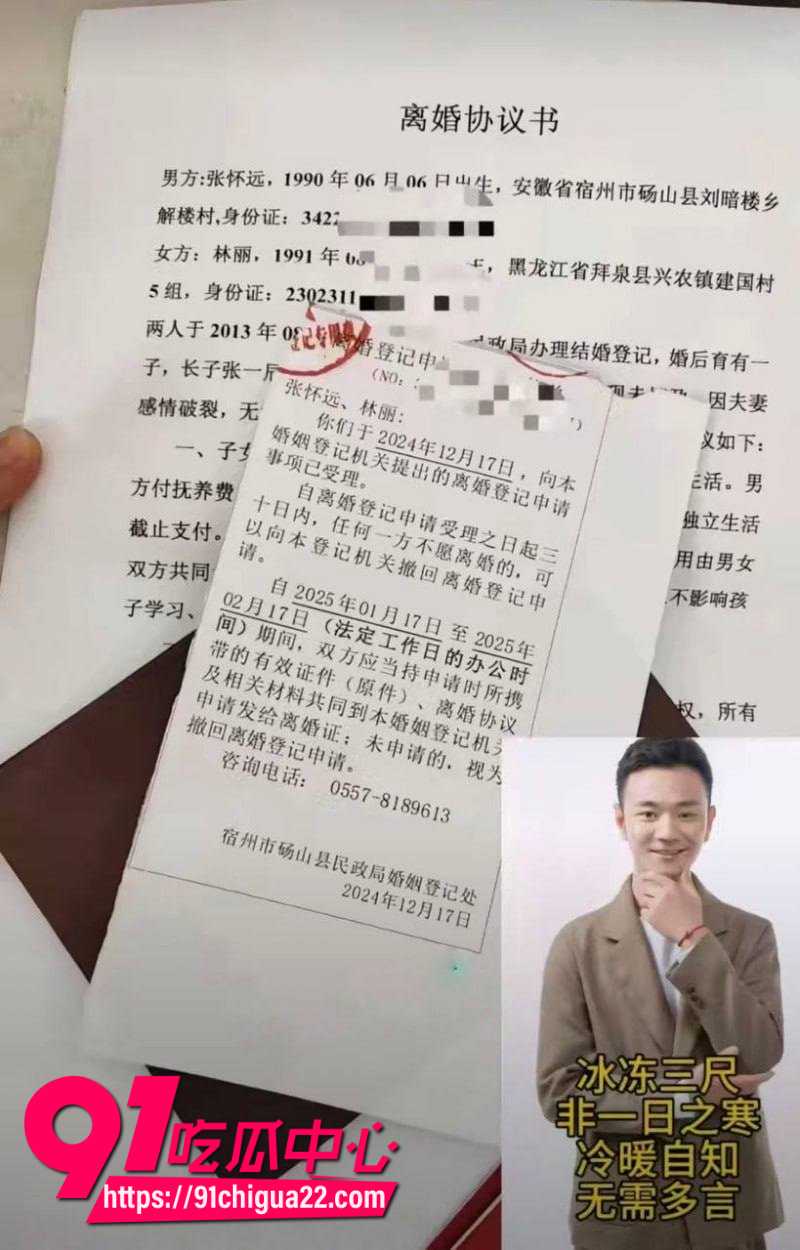 离婚协议书
男方:张怀远，1990年06月06日出生，安徽省宿州市砀山县刘暗楼乡
解楼村,身份证：3422
女方：林丽，1991年 黑龙江省拜泉县兴农镇建国村
5组，身份证：2302311
两人于2013年 政局办理结婚登记，婚后育有一
子，长子张一 因夫妻
感情破裂，无 议如下：
一、子女 生活。男
方付抚养费 独立生活
截止支付。 用由男女
双方共同 不影响孩
子学习、
权，所有
记专用
离婚登记申
(NO:
张怀远、林丽:
你们于2024年12月17日，向本
婚姻登记机关提出的离婚登记申请
事项已受理。
自离婚登记申请受理之日起三
十日内，任何一方不愿离婚的，可
以向本登记机关撤回离婚登记申
请。
自2025年01月17日至2025年
02月17日（法定工作日的办公时
间）期间，双方应当持申请时所携
带的有效证件（原件）、离婚协议
及相关材料共同到本婚姻登记机关
申请发给离婚证；未申请的，视为
撤回离婚登记申请。
咨询电话： 0557-8189613
宿州市砀山县民政局婚姻登记处
2024年12月17日
冰冻三尺
非一日之寒
冷暖自知
无需多言
91吃瓜中心
https://91chigua22.com